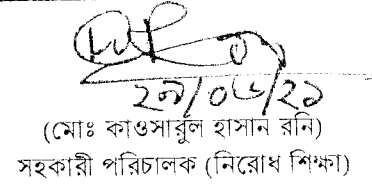 ২৯/০৬/২১
(মোঃ কাওসারুল হাসান রনি)
সহকারী পরিচালক (নিরোধ শিক্ষা)